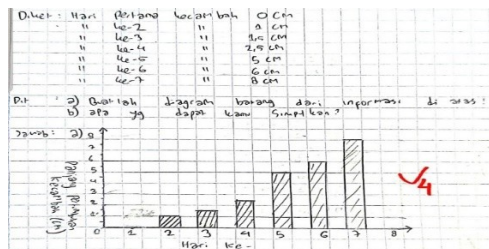 Diket : Hari Pertama kecambah 0 cm
" ke-2 " 1 cm
" ke-3 " 1,5 cm
" ke-4 " 2,5 cm
" ke-5 " 5 cm
" ke-6 " 6 cm
" ke-7 " 8 cm
Dit : a) Buatlah diagram batang dari informasi di atas:
b) apa yg dapat kamu simpulkan?
Jawab : a)
8
7
6
5
4
3
2
1
0 1 2 3 4 5 6 7 8
Hari ke-
4